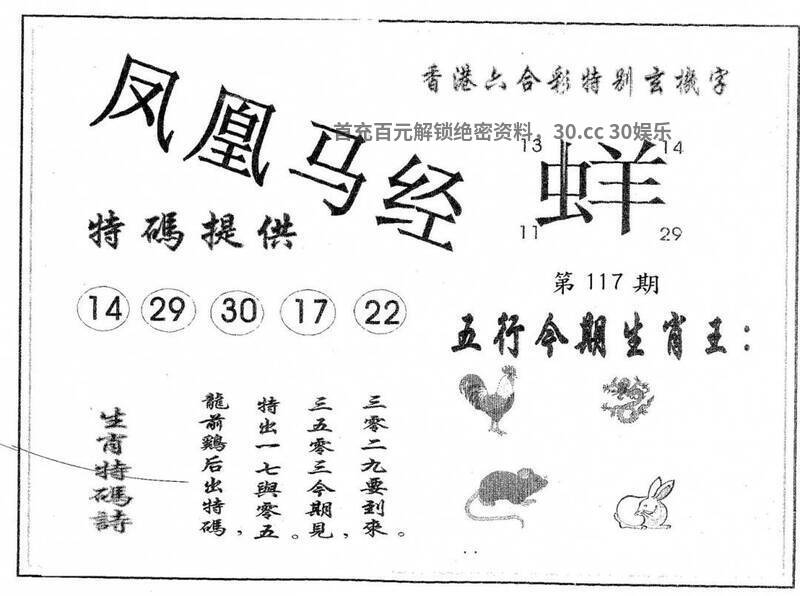 凤凰马经
香港六合彩特别玄機字
首充百元解锁绝密资料，30.cc 30娱乐
13
14
蛘
11
29
特碼提供
第117期
14 29 30 17 22
五行今期生肖王：
生肖特碼詩
三零二九要到來。
三五零三今期見，
特出一七與零五。
龍前鷄后出特碼，